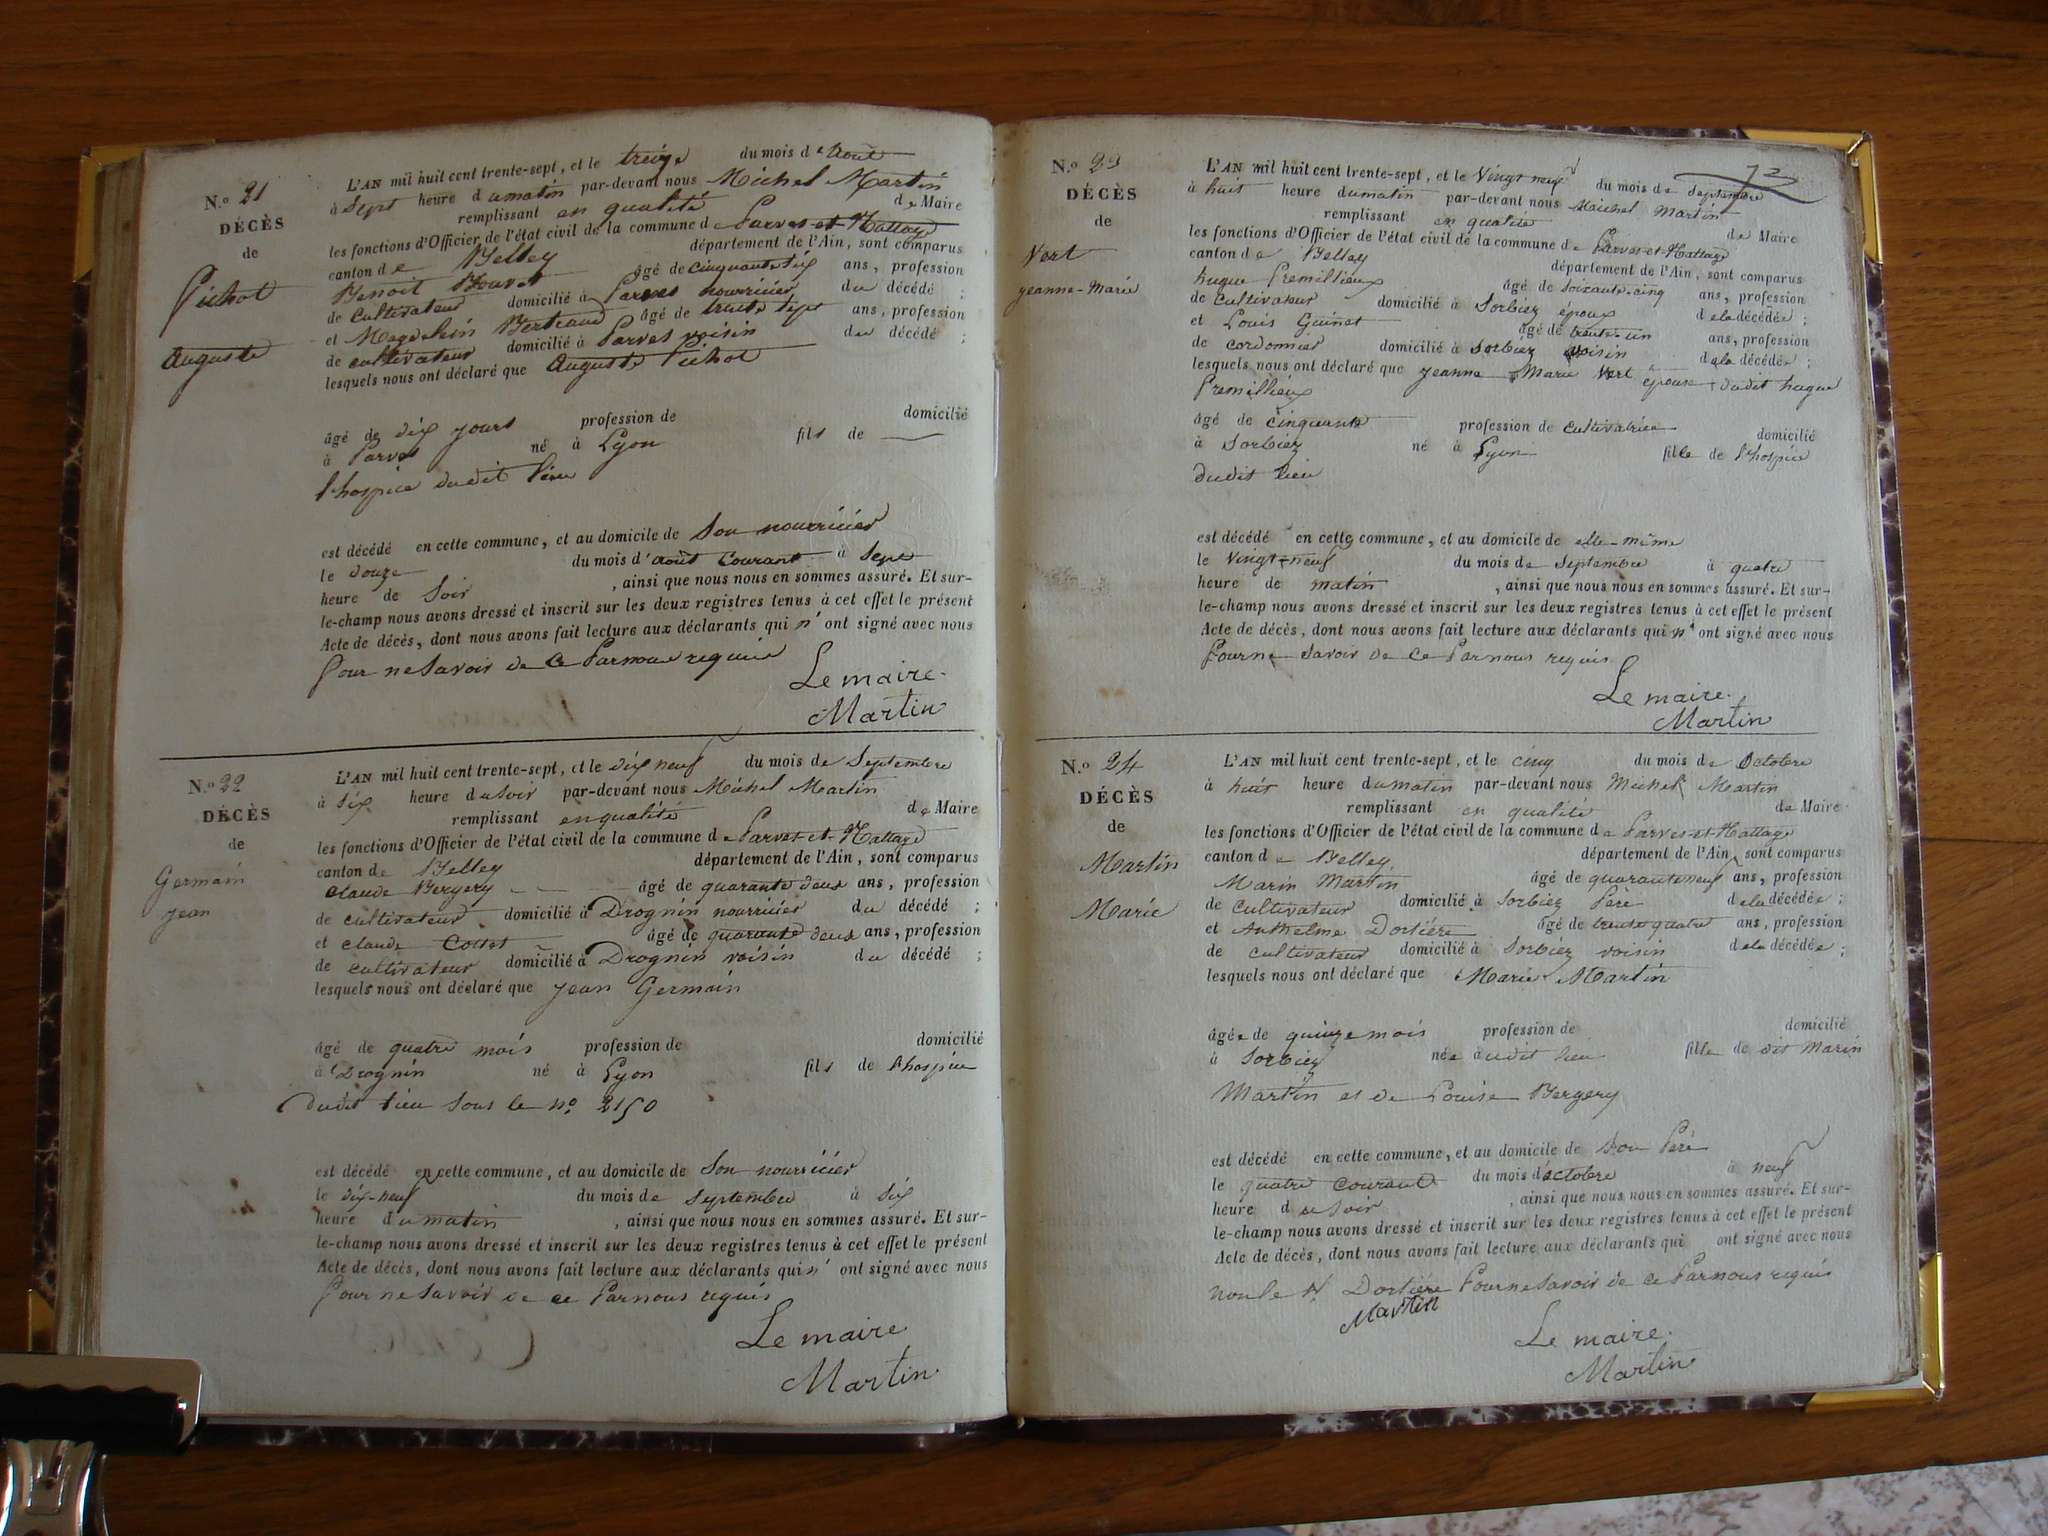 N.º 21
DÉCÈS
de
Pichot
Auguste
L'AN mil huit cent trente-sept, et le treize du mois d'août
à sept heure du matin par-devant nous Michel Martin
remplissant en qualité de Maire
les fonctions d'Officier de l'état civil de la commune de Parves-et-Nattage
canton de Belley département de l'Ain, sont comparus
Benoit Bouvet âgé de cinquante six ans, profession
de cultivateur domicilié à Parves nourricier du décédé ;
et Bertrand âgé de trente sept ans, profession
de cultivateur domicilié à Parves voisin du décédé ;
lesquels nous ont déclaré que Auguste Pichot
âgé de dix jours profession de domicilié
à Parves né à Lyon fils de
l'hospice dudit lieu
est décédé en cette commune, et au domicile de son nourricier
le douze du mois d'août courant à sept
heure de soir , ainsi que nous nous en sommes assuré. Et sur-
le-champ nous avons dressé et inscrit sur les deux registres tenus à cet effet le présent
Acte de décès, dont nous avons fait lecture aux déclarants qui n'ont signé avec nous
pour ne savoir de ce par nous requis
Le maire.
Martin
N.º 22
DÉCÈS
de
Germain
jean
L'AN mil huit cent trente-sept, et le dix neuf du mois de Septembre
à six heure du soir par-devant nous Michel Martin
remplissant en qualité de Maire
les fonctions d'Officier de l'état civil de la commune de Parves-et-Nattage
canton de Belley département de l'Ain, sont comparus
Claude Bergery âgé de quarante deux ans, profession
de cultivateur domicilié à Drognin nourricier du décédé ;
et claude Cottet âgé de quarante deux ans, profession
de cultivateur domicilié à Drognin voisin du décédé ;
lesquels nous ont déclaré que jean Germain
âgé de quatre mois profession de domicilié
à Drognin né à Lyon fils de l'hospice
dudit lieu sous le nº 2150
est décédé en cette commune, et au domicile de son nourricier
le dix-neuf du mois de septembre à six
heure du matin , ainsi que nous nous en sommes assuré. Et sur-
le-champ nous avons dressé et inscrit sur les deux registres tenus à cet effet le présent
Acte de décès, dont nous avons fait lecture aux déclarants qui n'ont signé avec nous
pour ne savoir de ce par nous requis
Le maire
Martin
72
N.º 23
DÉCÈS
de
Vert
jeanne-Marie
L'AN mil huit cent trente-sept, et le vingt neuf du mois de septembre
à huit heure du matin par-devant nous Michel Martin
remplissant en qualité de Maire
les fonctions d'Officier de l'état civil de la commune de Parves-et-Nattage
canton de Belley département de l'Ain, sont comparus
hugue Premillieux âgé de soixante-cinq ans, profession
de cultivateur domicilié à Sorbiez époux de la décédée ;
et Louis Guinet âgé de trente-un ans, profession
de cordonnier domicilié à Sorbiez voisin de la décédée ;
lesquels nous ont déclaré que jeanne-Marie Vert épouse dudit hugue
Premillieux
âgé de cinquante profession de cultivatrice domicilié
à Sorbiez né à Lyon fille de l'hospice
dudit lieu
est décédé en cette commune, et au domicile de elle-même
le vingt-neuf du mois de septembre à quatre
heure de matin , ainsi que nous nous en sommes assuré. Et sur-
le-champ nous avons dressé et inscrit sur les deux registres tenus à cet effet le présent
Acte de décès, dont nous avons fait lecture aux déclarants qui n'ont signé avec nous
pour ne savoir de ce par nous requis
Le maire.
Martin
N.º 24
DÉCÈS
de
Martin
Marie
L'AN mil huit cent trente-sept, et le cinq du mois de Octobre
à huit heure du matin par-devant nous Michel Martin
remplissant en qualité de Maire
les fonctions d'Officier de l'état civil de la commune de Parves-et-Nattage
canton de Belley département de l'Ain, sont comparus
Marin Martin âgé de quarante neuf ans, profession
de cultivateur domicilié à Sorbiez Père de la décédée ;
et Anthelme Dortière âgé de trente quatre ans, profession
de cultivateur domicilié à Sorbiez voisin de la décédée ;
lesquels nous ont déclaré que Marie Martin
âgée de quinze mois profession de domicilié
à Sorbiez née audit lieu fille de dit Marin
Martin et de Louise Bergery
est décédé en cette commune, et au domicile de son Père
le quatre courant du mois d'octobre à neuf
heure du soir , ainsi que nous nous en sommes assuré. Et sur-
le-champ nous avons dressé et inscrit sur les deux registres tenus à cet effet le présent
Acte de décès, dont nous avons fait lecture aux déclarants qui ont signé avec nous
non le Dortière pour ne savoir de ce par nous requis
Martin
Le maire.
Martin